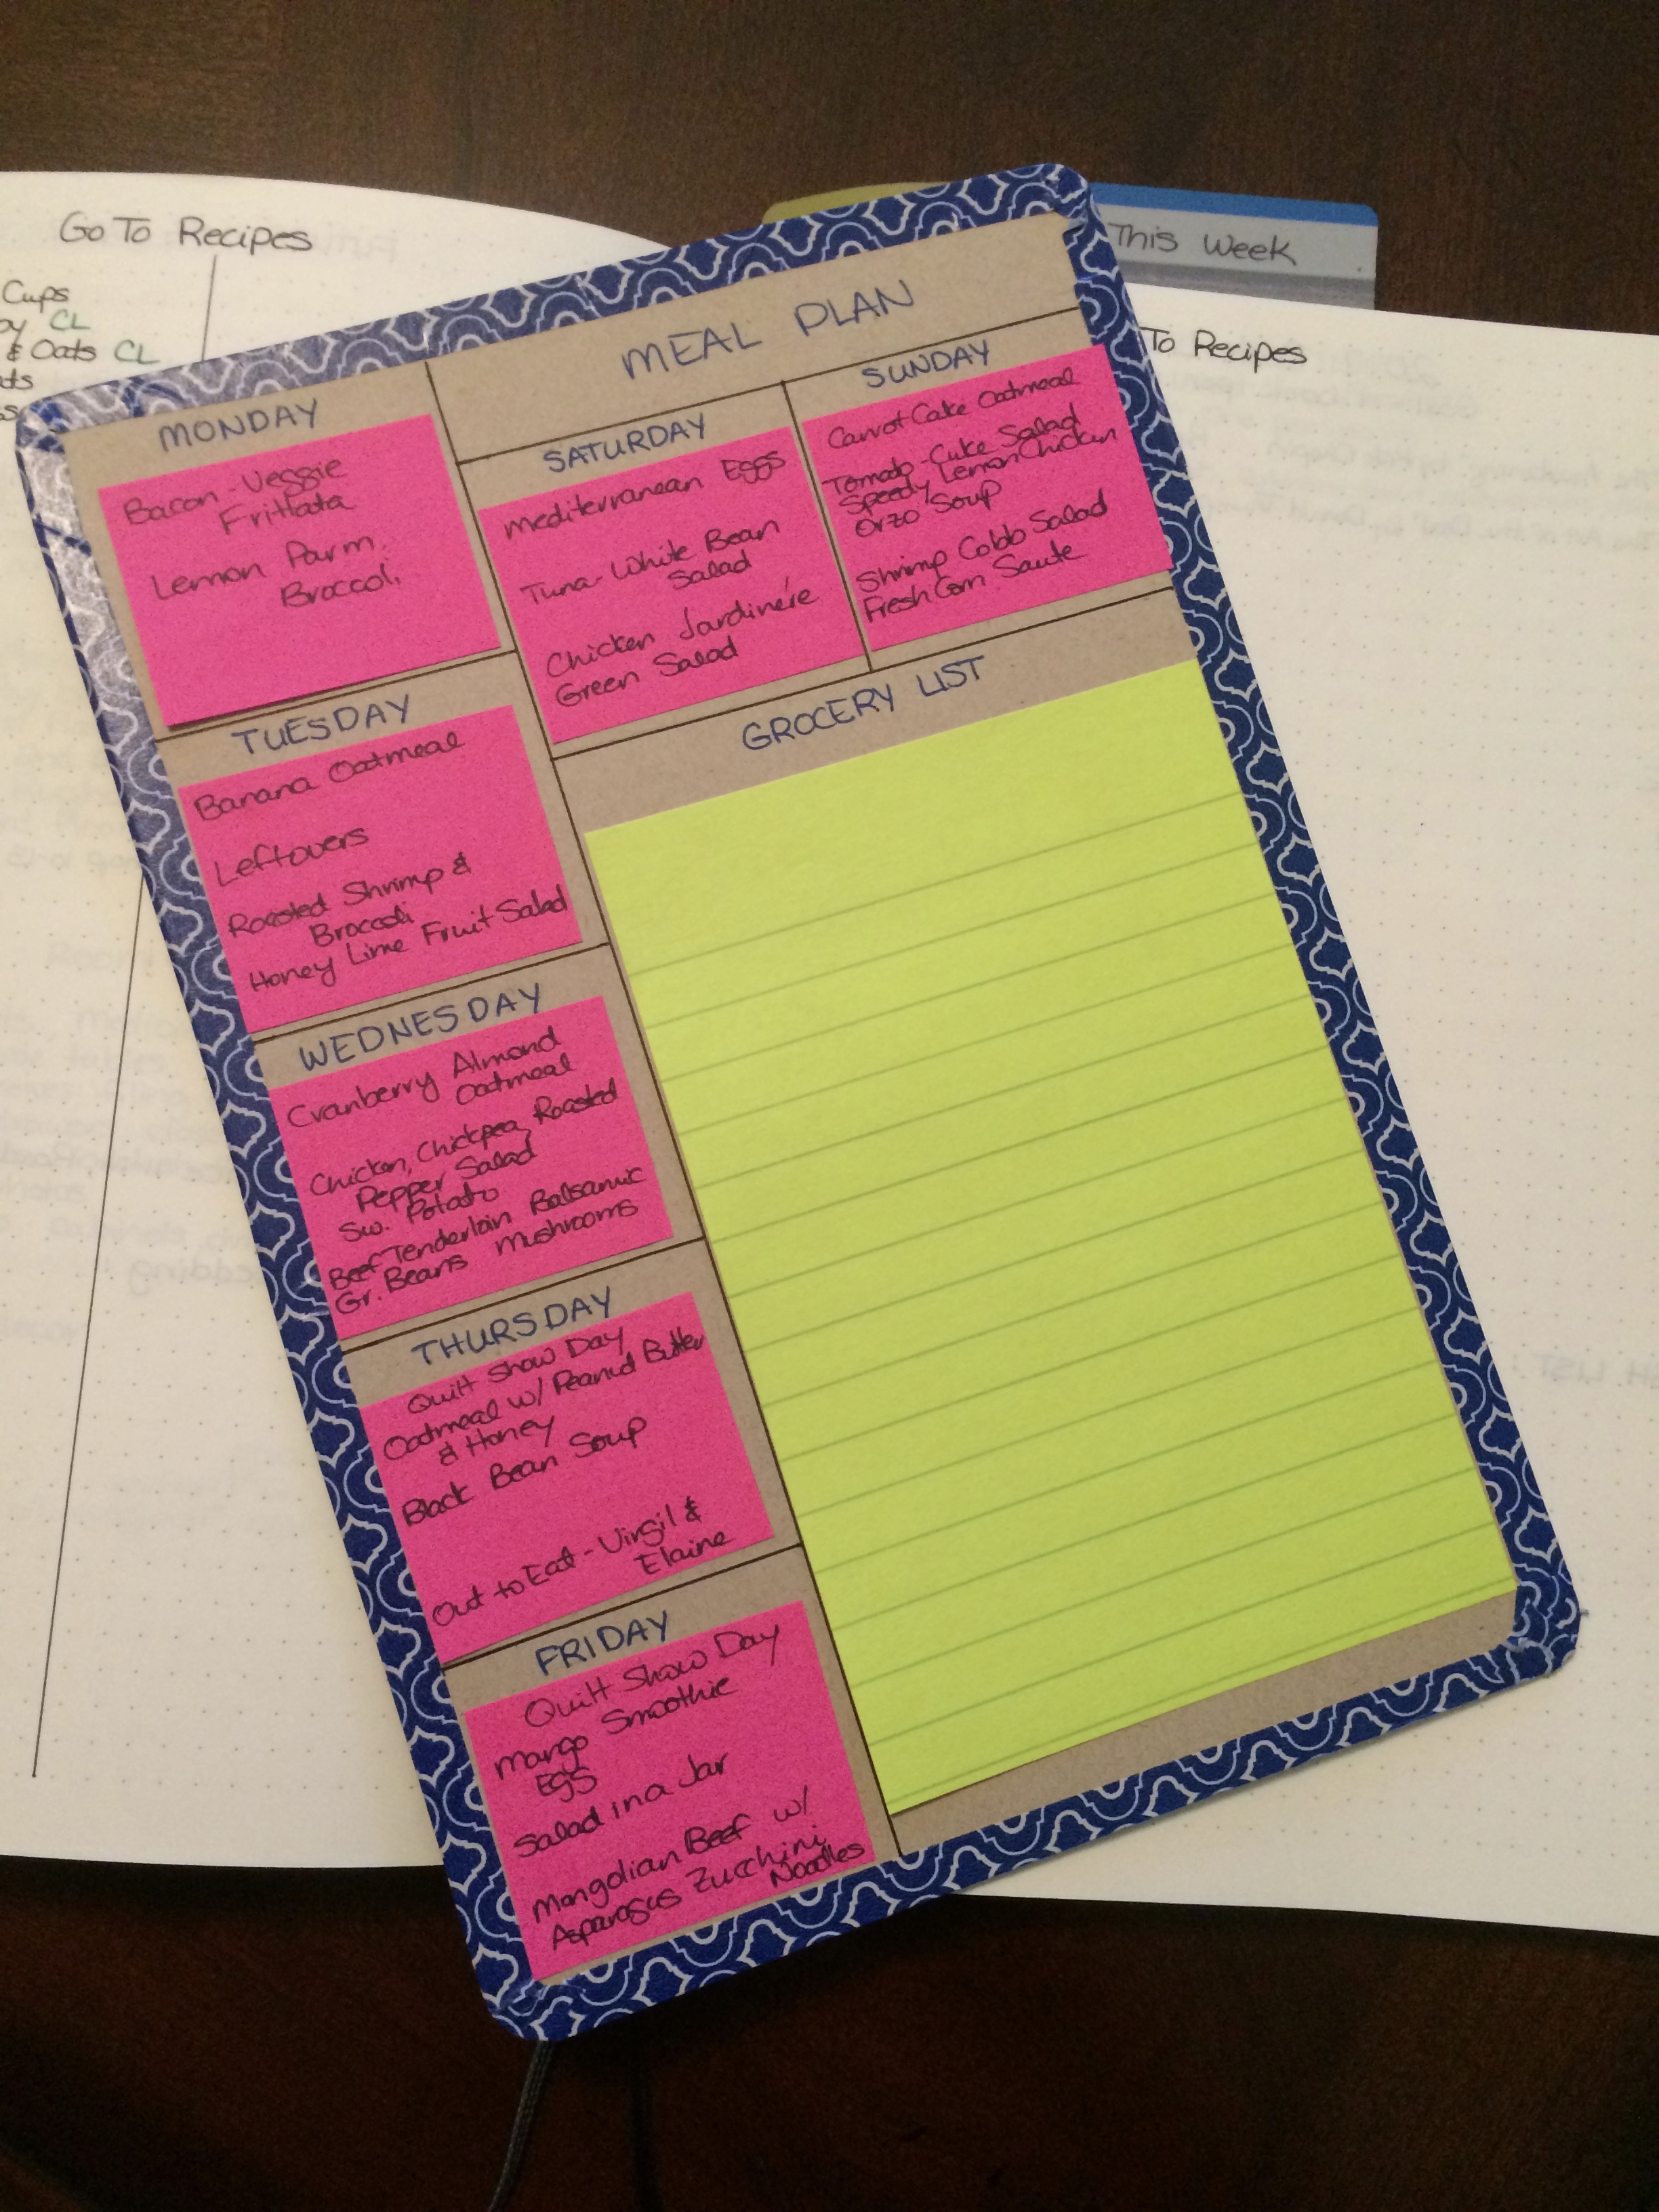 Go To Recipes
Cups
CL
& Oats CL
This Week
To Recipes
MEAL PLAN
MONDAY
Bacon-Veggie
Frittata
Lemon Parm.
Broccoli
TUESDAY
Banana Oatmeal
Leftovers
Roasted Shrimp &
Broccoli
Honey Lime Fruit Salad
WEDNESDAY
Cranberry Almond
Oatmeal
Chicken, Chickpea, Roasted
Pepper Salad
Sw. Potato
Beef Tenderloin Balsamic
Gr. Beans Mushrooms
THURSDAY
Quilt Show Day
Oatmeal w/ Peanut Butter
& Honey
Black Bean Soup
Out to Eat - Virgil &
Elaine
FRIDAY
Quilt Show Day
Mango Smoothie
EgS
Salad in a Jar
Mongolian Beef w/
Asparagus Zucchini
Noodles
SATURDAY
Mediterranean Eggs
Tuna-White Bean
Salad
Chicken Jardinére
Green Salad
SUNDAY
Carrot Cake Oatmeal
Tomato-Cuke Salad
Speedy Lemon Chicken
Orzo Soup
Shrimp Cobb Salad
Fresh Corn Saute
GROCERY LIST